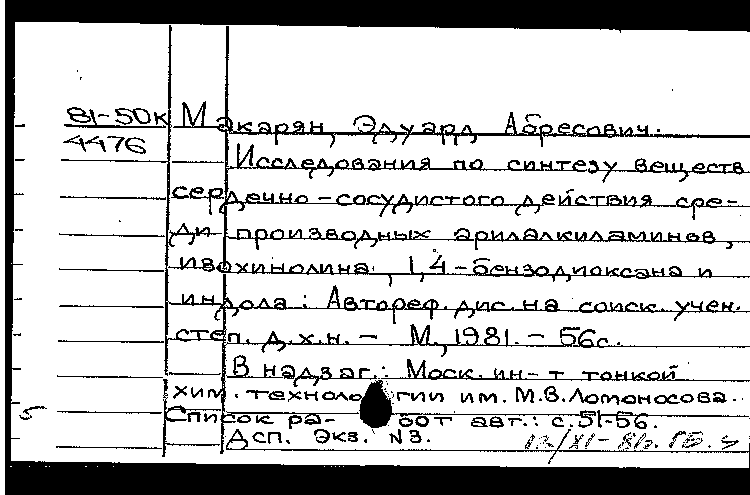 81-50к Макарян, Эдуард Абресович.
4476 Исследования по синтезу веществ
сердечно-сосудистого действия сре-
ди производных арилалкиламинов,
изохинолина, 1,4-бензодиоксана и
индола: Автореф. дис. на соиск. учен.
степ. д.х.н. - М., 1981. - 56с.
В надзаг.: Моск. ин-т тонкой
хим. технологии им. М.В. Ломоносова.
5 Список работ авт.: с.51-56.
Дсп. Экз. N3. 12/XI-81г.